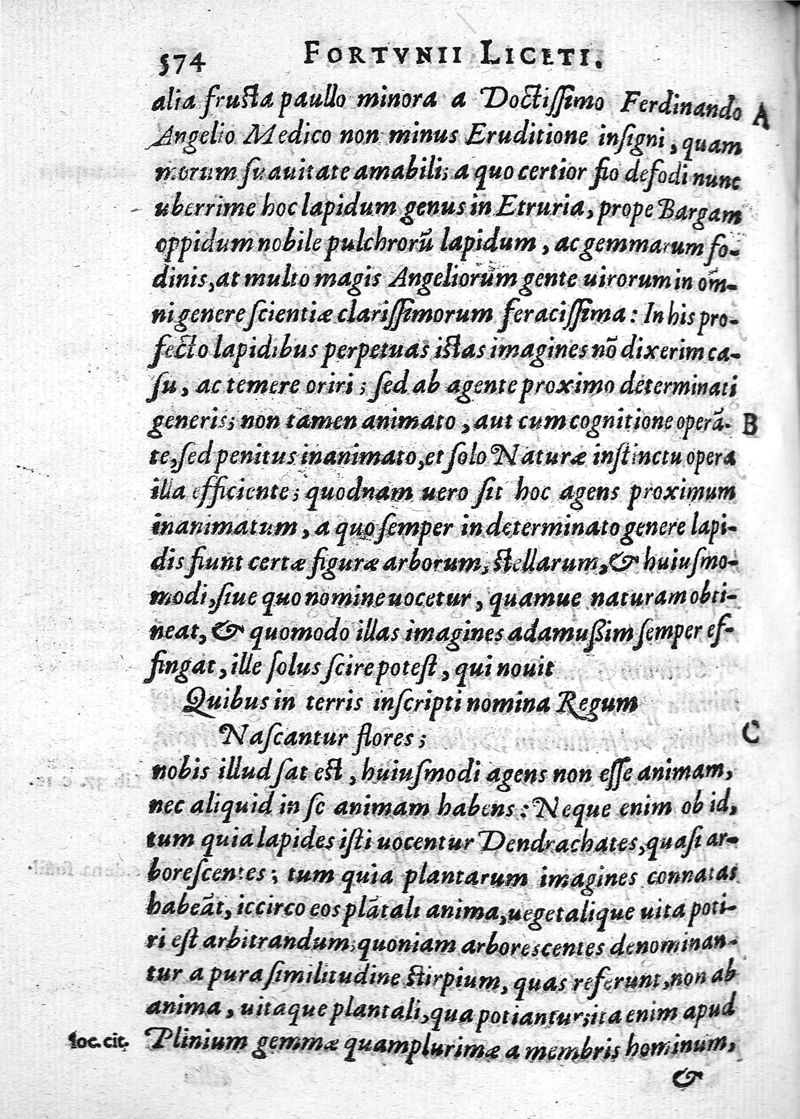 574 FORTVNII LICETI.
alia frusta paullo minora a Doctissimo Ferdinando A
Angelio Medico non minus Eruditione insigni, quam
morum suauitate amabili; a quo certior fio defodi nunc
uberrime hoc lapidum genus in Etruria, prope Bargam
oppidum nobile pulchrorū lapidum, ac gemmarum fo-
dinis, at multo magis Angeliorum gente uirorum in om-
ni genere scientiæ clarissimorum feracissima: In his pro-
fecto lapidibus perpetuas istas imagines nō dixerim ca-
su, ac temere oriri; sed ab agente proximo determinati
generis; non tamen animato, aut cum cognitione operā- B
te, sed penitus inanimato, et solo Naturæ instinctu opera
illa efficiente; quodnam uero sit hoc agens proximum
inanimatum, a quo semper in determinato genere lapi-
dis fiunt certæ figuræ arborum, stellarum, & huiusmo-
modi, siue quo nomine uocetur, quamue naturam obti-
neat, & quomodo illas imagines adamußim semper ef-
fingat, ille solus scire potest, qui nouit
Quibus in terris inscripti nomina Regum
Nascantur flores; C
nobis illud sat est, huiusmodi agens non esse animam,
nec aliquid in se animam habens: Neque enim ob id,
tum quia lapides isti uocentur Dendrachates, quasi ar-
borescentes; tum quia plantarum imagines connatas
habeāt, iccirco eos plātali anima, uegetalique uita poti-
ri est arbitrandum; quoniam arborescentes denominan-
tur a pura similitudine stirpium, quas referunt, non ab
anima, uitaque plantali, qua potiantur; ita enim apud
loc. cit. Plinium gemmæ quamplurimæ a membris hominum,
&